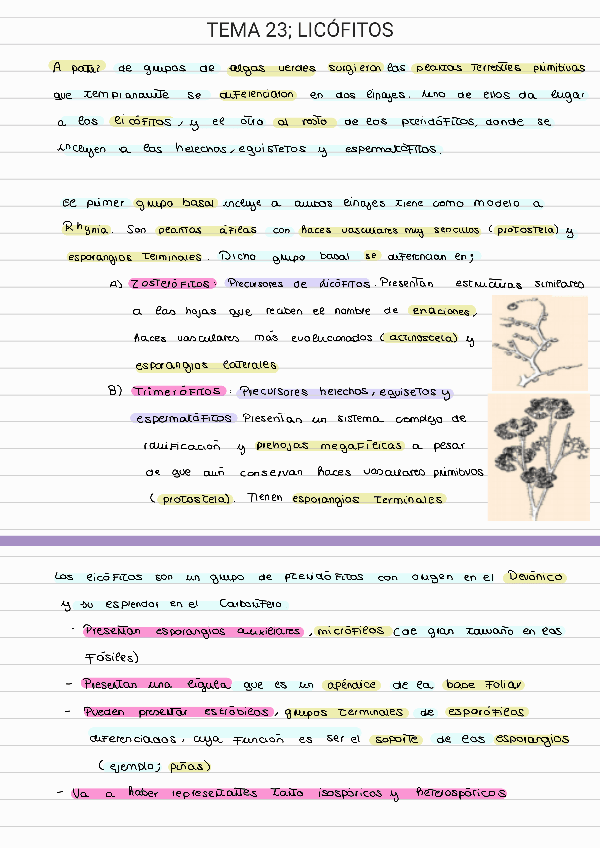 TEMA 23; LICÓFITOS
A partir de grupos de algas verdes surgieron las plantas terrestres primitivas
que tempranamente se diferenciaron en dos linajes. Uno de ellos da lugar
a los licófitos, y el otro al resto de los pteridófitos, donde se
incluyen a los helechos, equisetos y espermatófitos.
El primer grupo basal incluye a ambos linajes tiene como modelo a
Rhynia. Son plantas áfilas con haces vasculares muy sencillos (protostela) y
esporangios terminales. Dicho grupo basal se diferencian en;
A) Zosterófitos: Precursores de licófitos. Presentan estructuras similares
a las hojas que reciben el nombre de enaciones,
haces vasculares más evolucionados (actinostela) y
esporangios laterales
B) Trimerófitos: Precursores helechos, equisetos y
espermatófitos Presentan un sistema complejo de
ramificación y prehojas megafílicas a pesar
de que aún conservan haces vasculares primitivos
(protostela). Tienen esporangios terminales
Los licófitos son un grupo de pteridófitos con origen en el Devónico
y su esplendor en el Carbonífero
· Presentan esporangios auxiliares, micrófilos (de gran tamaño en los
fósiles)
- Presentan una lígula que es un apéndice de la base foliar
- Pueden presentar estróbilos, grupos terminales de esporófilos
diferenciados, cuya función es ser el soporte de los esporangios
(ejemplo; piñas)
- Va a haber representantes tanto isospóricos y heterospóricos